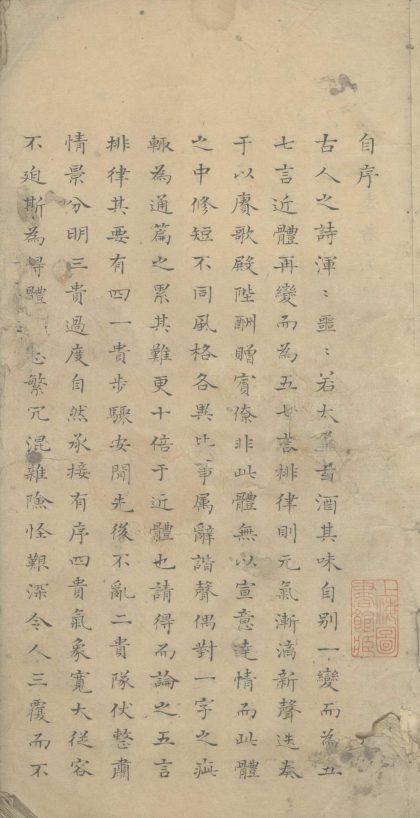 自序
古人之詩渾〻噩〻若大羹昔酒其味自别一變而為五
七言近體再變而為五七言排律則元氣漸漓新聲迭奏
于以賡歌殿陛酬贈賓僚非此體無以宣意達情而此體
之中修短不同風格各異比事属辭諧聲偶對一字之疵
輒為通篇之累其難更十倍于近體也請得而論之五言
排律其要有四一貴步驟安閒先後不亂二貴隊伏整肅
情景分明三貴過度自然承接有序四貴氣象寬大從容
不廹斯為得體 忌繁冗混雜險怪艱深令人三覆而不
上海圖書館藏